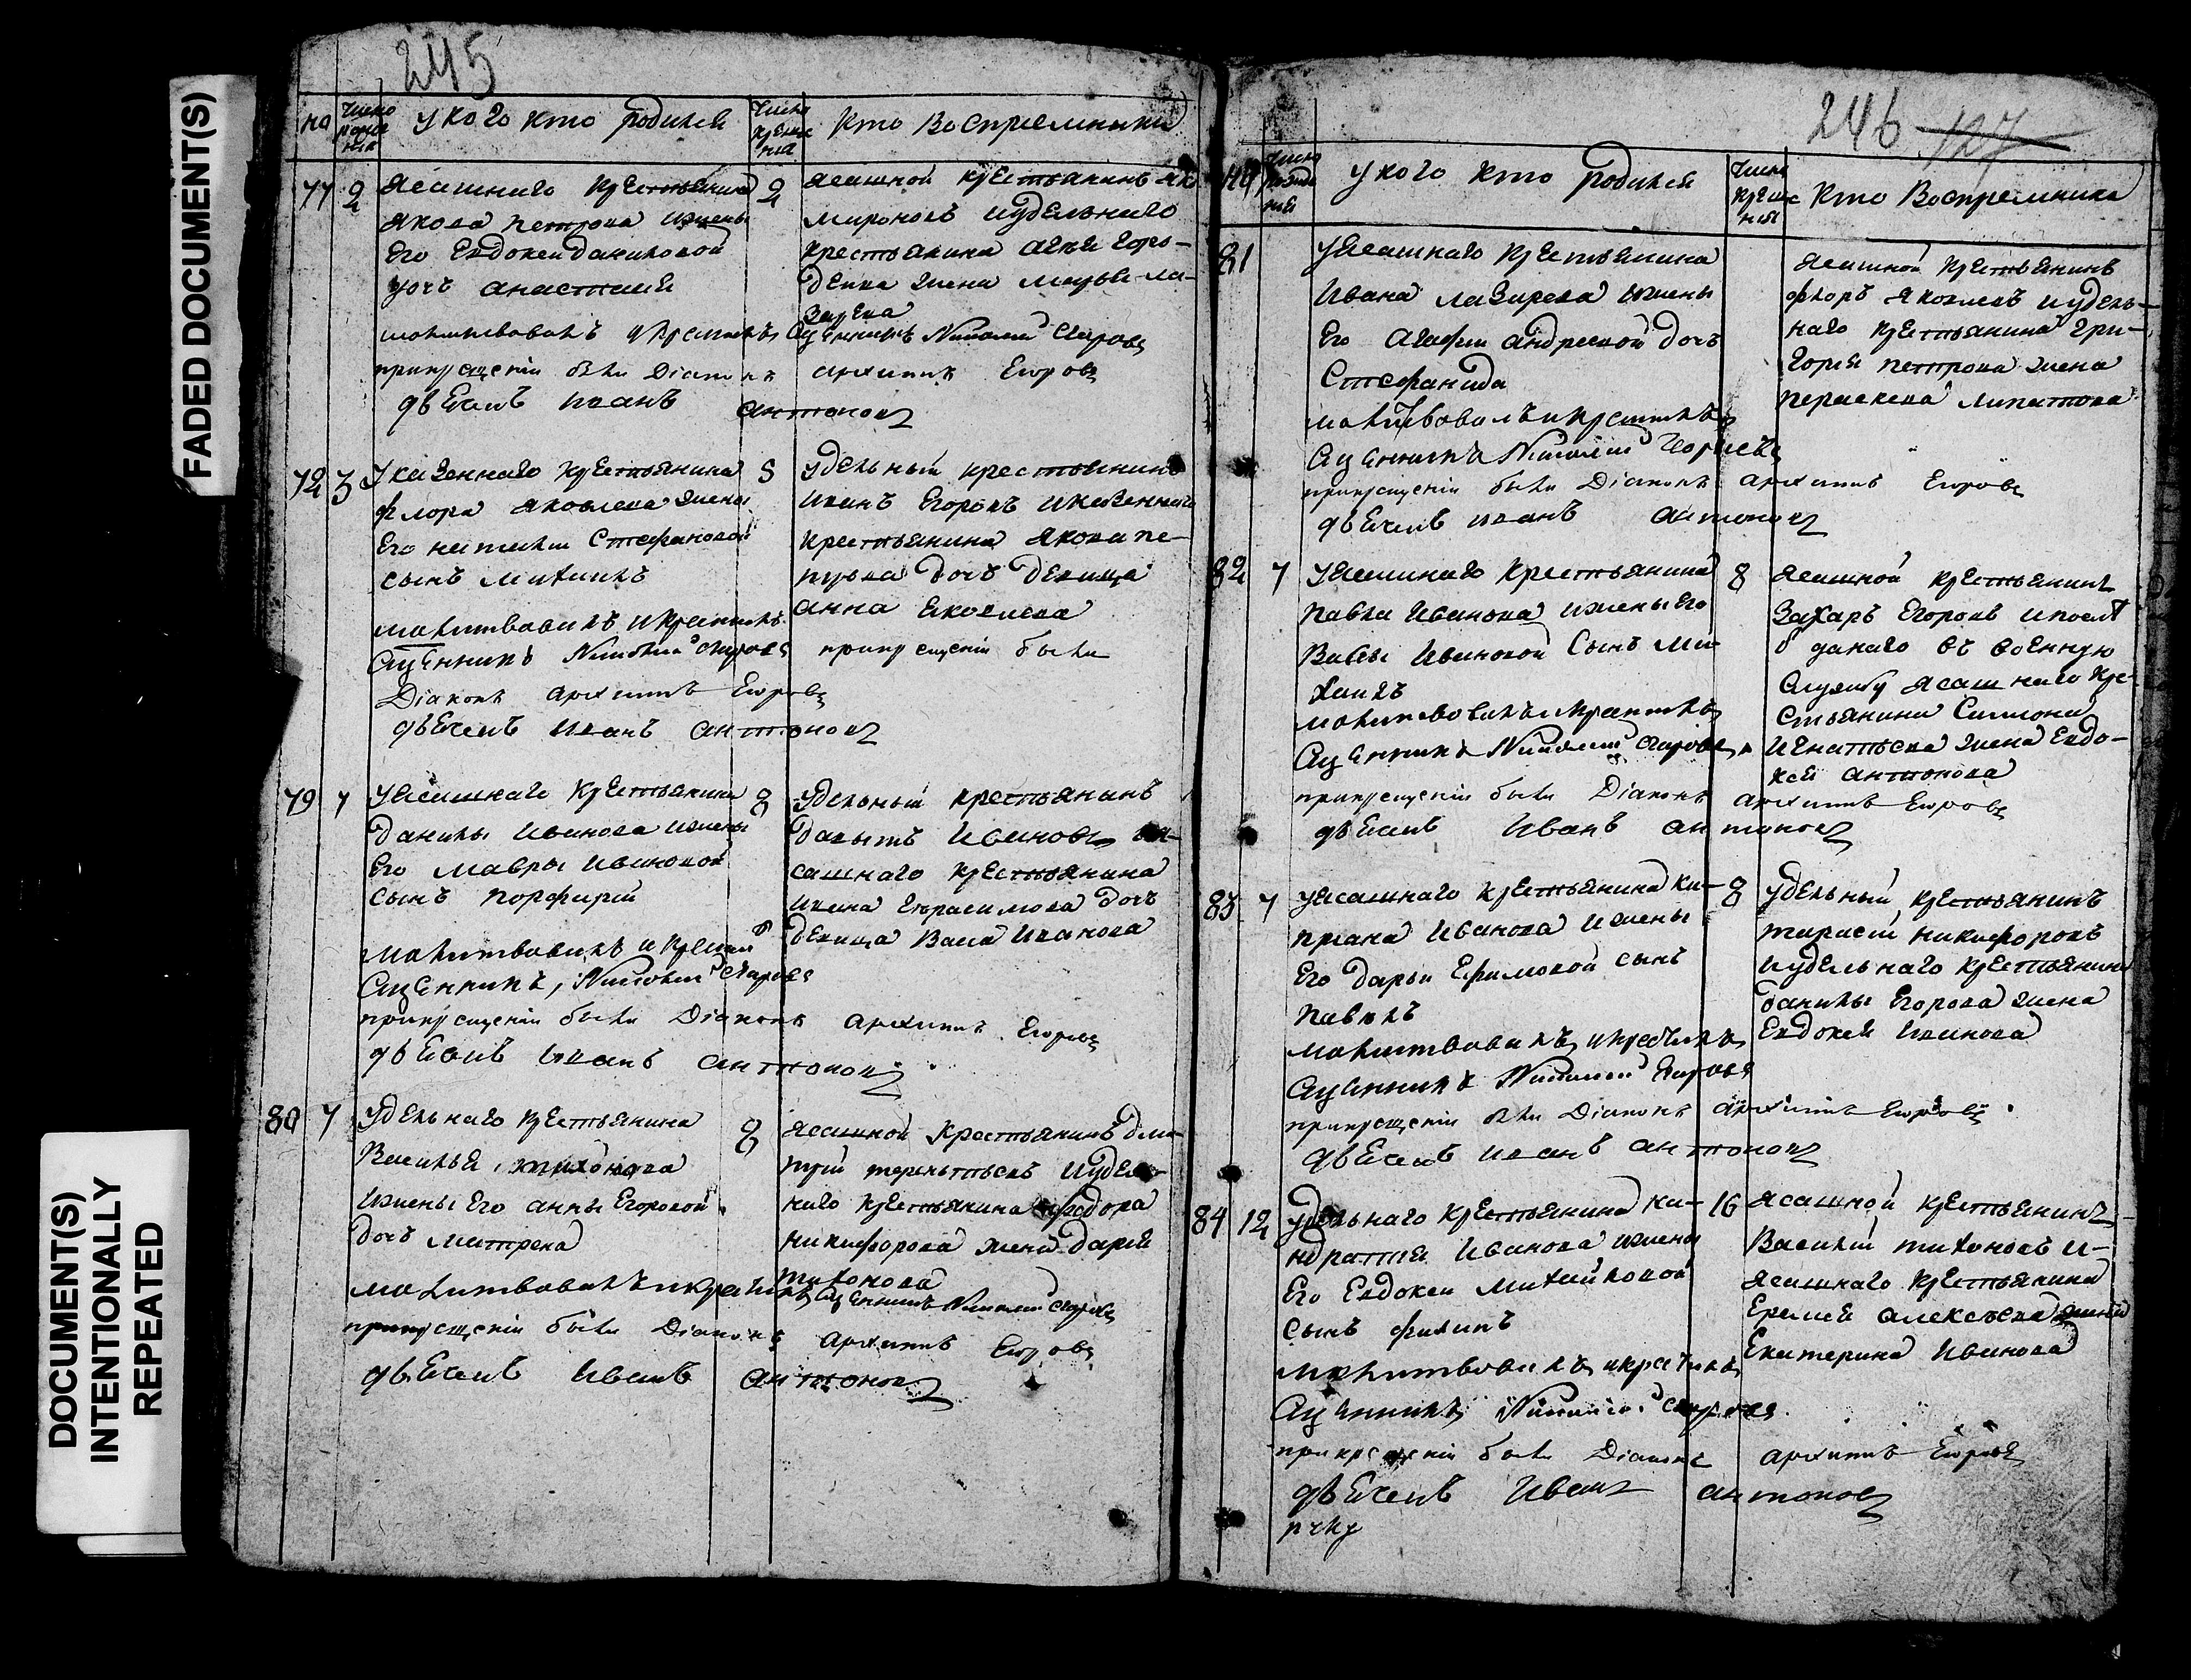 FADED DOCUMENT(S)
DOCUMENT(S)
INTENTIONALLY
REPEATED
245
Число рожде нія
У кого кто родился
Число креще нія
Кто Воспріемники
77 2
Ясашнаго крестьянина
Якова Петрова ижены
Его Евдокеи даниловой
дочь анастасия
молитвовалъ икрестилъ Священникъ Николай
прикрещеніи были Діаконъ архипъ Егоровъ
дьячекъ иванъ антоновъ
2
Ясашной крестьянинъ
Мироновъ иудельнаго
крестьянина
жена марья ла-
зарева
3
Указеннаго крестьянина
флора яковлева жены
Его наталіи Стефановой
сынъ михаилъ
молитвовалъ икрестилъ
Священникъ Николай
Діаконъ архипъ Егоровъ
дьячекъ иванъ антоновъ
5
удельный крестьянинъ
иванъ Егоровъ иказеннаго
крестьянина якова пе-
трова дочь девица
анна яковлева
прикрещеніи были
79 7
Уясашнаго крестьянина
данилы иванова ижены
Его мавры ивановой
сынъ порфирій
молитвовалъ и крестилъ
Священникъ, Николай
прикрещеніи были Діаконъ архипъ Егоровъ
дьячекъ иванъ антоновъ
8
удельный крестьянинъ
давытъ ивановъ ия-
сашнаго крестьянина
ивана герасимова дочь
девица Васа иванова
80 7
удельнаго крестьянина
Василья тихонова
ижены Его анны Егоровой
дочь матрена
молитвовалъ икрестилъ Священникъ Николай
прикрещеніи были Діаконъ архипъ Егоровъ
дьячекъ иванъ антоновъ
8
ясашной крестьянинъ дми-
трій терентьевъ иудель-
наго крестьянина федора
никифорова жена дарья
тихонова
246 127
У кого кто родился
Число креще нія
Кто Воспріемники
81
уясашнаго крестьянина
ивана лазарева ижены
Его агафьи андреевой дочь
Стефанида
молитвовалъ икрестилъ
Священникъ Николай
прикрещеніи были Діаконъ архипъ Егоровъ
дьячекъ иванъ антоновъ
ясашной крестьянинъ
флоръ яковлевъ иудель-
наго крестьянина гри-
горья петрова жена
параскева
82 7
уясашнаго крестьянина
павла иванова ижены Его
Васы ивановой Сынъ Ми-
хаилъ
молитвовалъ икрестилъ
Священникъ Николай
прикрещеніи были Діаконъ архипъ Егоровъ
дьячекъ иванъ антоновъ
8
ясашной крестьянинъ
Захаръ Егоровъ
данаго въ военную
службу ясашнаго кре-
стьянина Симіона
игнатьева жена Евдо-
кея антонова
83 7
уясашнаго крестьянина ки-
пріана иванова ижены
Его дарьи Ефимовой сынъ
павелъ
молитвовалъ икрестилъ
Священникъ Николай
прикрещеніи были Діаконъ архипъ Егоровъ
дьячекъ иванъ антоновъ
8
удельный крестьянинъ
тарасій никифоровъ
иудельнаго крестьянина
данилы Егорова жена
Евдокея иванова
84 12
удельнаго крестьянина ка-
ндратья иванова ижены
Его Евдокеи михайловой
сынъ филипъ
молитвовалъ икрестилъ
Священникъ Николай
прикрещеніи были Діаконъ архипъ Егоровъ
дьячекъ иванъ антоновъ
16
ясашной крестьянинъ
Василій тихоновъ и-
ясашнаго крестьянина
Еремея алексеева жена
Екатерина иванова